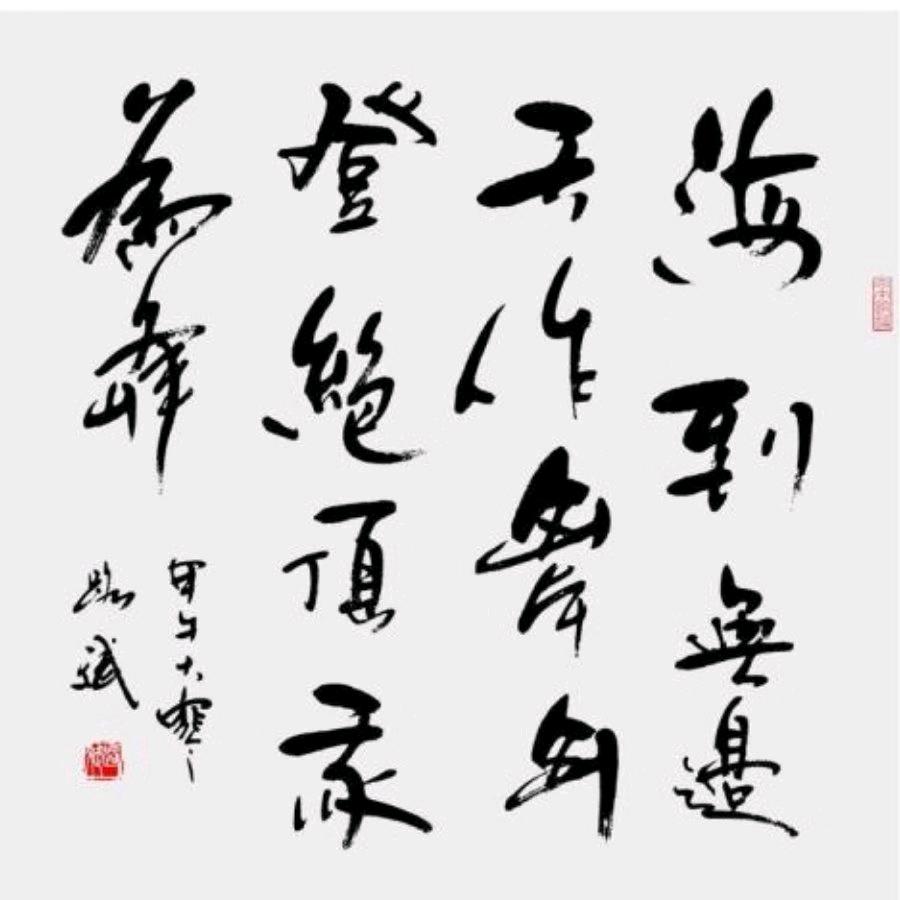 海到無邊
天作岸山
登絕頂我
為峰
甲午大寒
斌